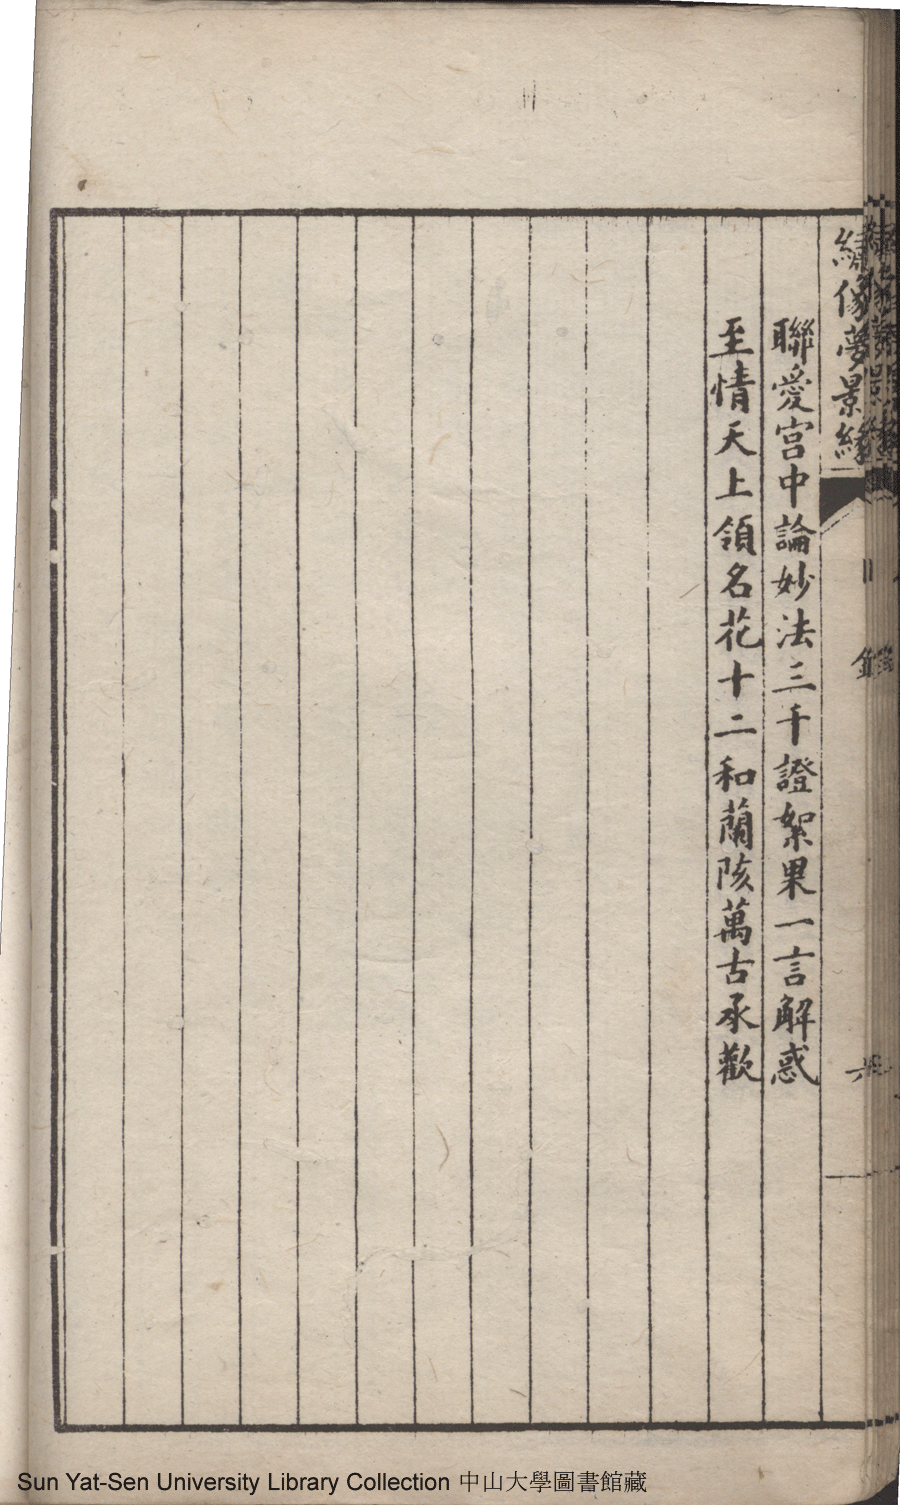 繡像夢景緣
目錄
聯愛宮中論妙法三千證絮果一言解惑
至情天上領名花十二和蘭陔萬古承歡
Sun Yat-Sen University Library Collection 中山大學圖書館藏